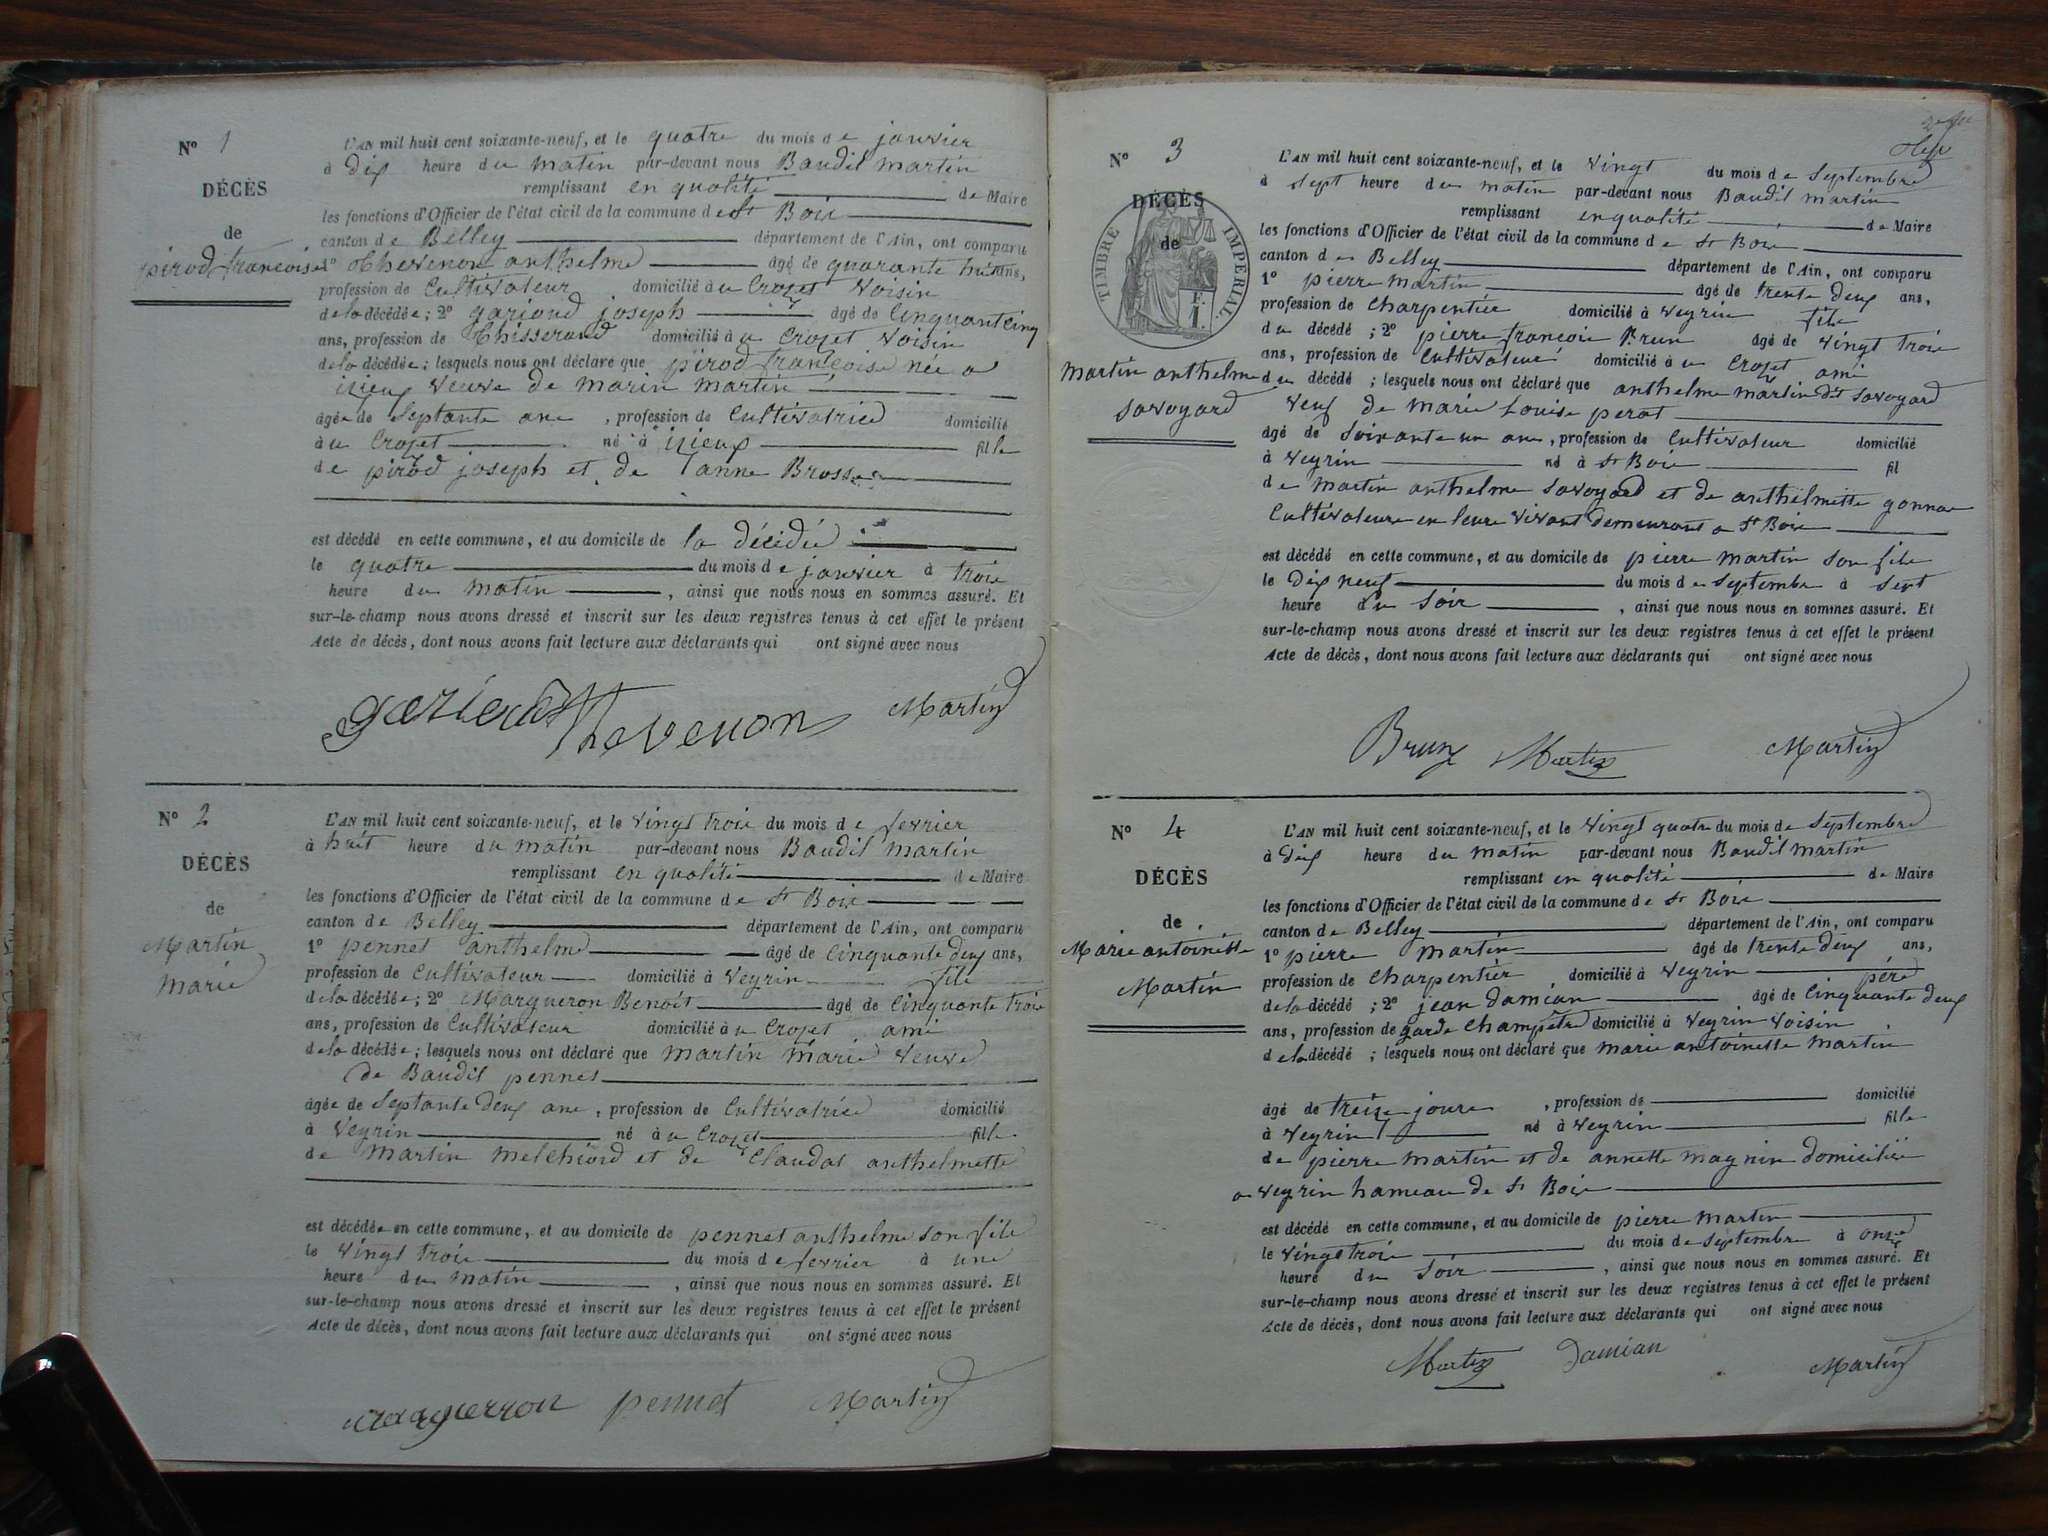 N° 1
DÉCÈS
de
pirod françoise
L'AN mil huit cent soixante-neuf, et le quatre du mois de janvier
à dix heure du matin par-devant nous Baudil martin
remplissant en qualité de Maire
les fonctions d'Officier de l'état civil de la commune de St Bois
canton de Belley département de l'Ain, ont comparu
1° Thevenon anthelme âgé de quarante huit ans,
profession de Cultivateur domicilié à u Crozet voisin
de la décédée; 2° garioud joseph âgé de Cinquant cinq
ans, profession de thisserand domicilié à u Crozet voisin
de la décédée; lesquels nous ont déclaré que pirod françoise née a
izieux veuve de marin martin
âgée de Septante ans, profession de Cultivatrice domicilié
à u Crozet né à izieux fille
de pirod joseph et de anne Brosse
est décédé en cette commune, et au domicile de la décédé
le quatre du mois de janvier à trois
heure du matin, ainsi que nous nous en sommes assuré. Et
sur-le-champ nous avons dressé et inscrit sur les deux registres tenus à cet effet le présent
Acte de décès, dont nous avons fait lecture aux déclarants qui ont signé avec nous
garioud Thevenon Martin
N° 2
DÉCÈS
de
Martin
marie
L'AN mil huit cent soixante-neuf, et le vingt trois du mois de fevrier
à huit heure du matin par-devant nous Baudil martin
remplissant en qualité de Maire
les fonctions d'Officier de l'état civil de la commune de St Bois
canton de Belley département de l'Ain, ont comparu
1° pennet anthelme âgé de Cinquante deux ans,
profession de Cultivateur domicilié à Veyrin fils
de la décédée; 2° Margueron Benoit âgé de Cinquante trois
ans, profession de Cultivateur domicilié à u Crozet ami
de la décédée; lesquels nous ont déclaré que martin marie veuve
de Baudil pennet
âgée de Septante deux ans, profession de Cultivatrice domicilié
à Veyrin né à u Crozet fille
de martin melchiord et de Claudat anthelmette
est décédée en cette commune, et au domicile de pennet anthelme son fils
le vingt trois du mois de fevrier à une
heure du matin, ainsi que nous nous en sommes assuré. Et
sur-le-champ nous avons dressé et inscrit sur les deux registres tenus à cet effet le présent
Acte de décès, dont nous avons fait lecture aux déclarants qui ont signé avec nous
margueron pennet Martin
N° 3
DÉCÈS
de
TIMBRE IMPERIAL
F. 1.
martin anthelme
savoyard
L'AN mil huit cent soixante-neuf, et le vingt du mois de Septembre
à sept heure du matin par-devant nous Baudil martin
remplissant en qualité de Maire
les fonctions d'Officier de l'état civil de la commune de St Bois
canton de Belley département de l'Ain, ont comparu
1° pierre martin âgé de trente deux ans,
profession de charpentier domicilié à veyrin fils
du décédé; 2° pierre francois Brun âgé de vingt trois
ans, profession de Cultivateur domicilié à u Crozet ami
du décédé; lesquels nous ont déclaré que anthelme martin dit savoyard
veuf de marie Louise perat
âgé de soixante un ans, profession de Cultivateur domicilié
à veyrin né à St Bois fil
de martin anthelme savoyard et de anthelmette gonnae
Cultivateurs en leurs vivant demeurant a St Bois
est décédé en cette commune, et au domicile de pierre martin son fils
le dix neuf du mois de septembre à sept
heure du soir, ainsi que nous nous en sommes assuré. Et
sur-le-champ nous avons dressé et inscrit sur les deux registres tenus à cet effet le présent
Acte de décès, dont nous avons fait lecture aux déclarants qui ont signé avec nous
Brun Martin Martin
N° 4
DÉCÈS
de
Marie antoinette
Martin
L'AN mil huit cent soixante-neuf, et le vingt quatre du mois de Septembre
à dix heure du matin par-devant nous Baudil martin
remplissant en qualité de Maire
les fonctions d'Officier de l'état civil de la commune de St Bois
canton de Belley département de l'Ain, ont comparu
1° pierre martin âgé de trente deux ans,
profession de charpentier domicilié à veyrin père
de la décédé; 2° jean damian âgé de Cinquante deux
ans, profession de garde Champêtre domicilié à veyrin voisin
de la décédé; lesquels nous ont déclaré que marie antoinette martin
âgé de treize jours, profession de domicilié
à veyrin né à veyrin fille
de pierre martin et de annette magnin domicilié
a veyrin hameau de St Bois
est décédé en cette commune, et au domicile de pierre martin
le vingt trois du mois de septembre à onze
heure du soir, ainsi que nous nous en sommes assuré. Et
sur-le-champ nous avons dressé et inscrit sur les deux registres tenus à cet effet le présent
Acte de décès, dont nous avons fait lecture aux déclarants qui ont signé avec nous
Martin damian Martin